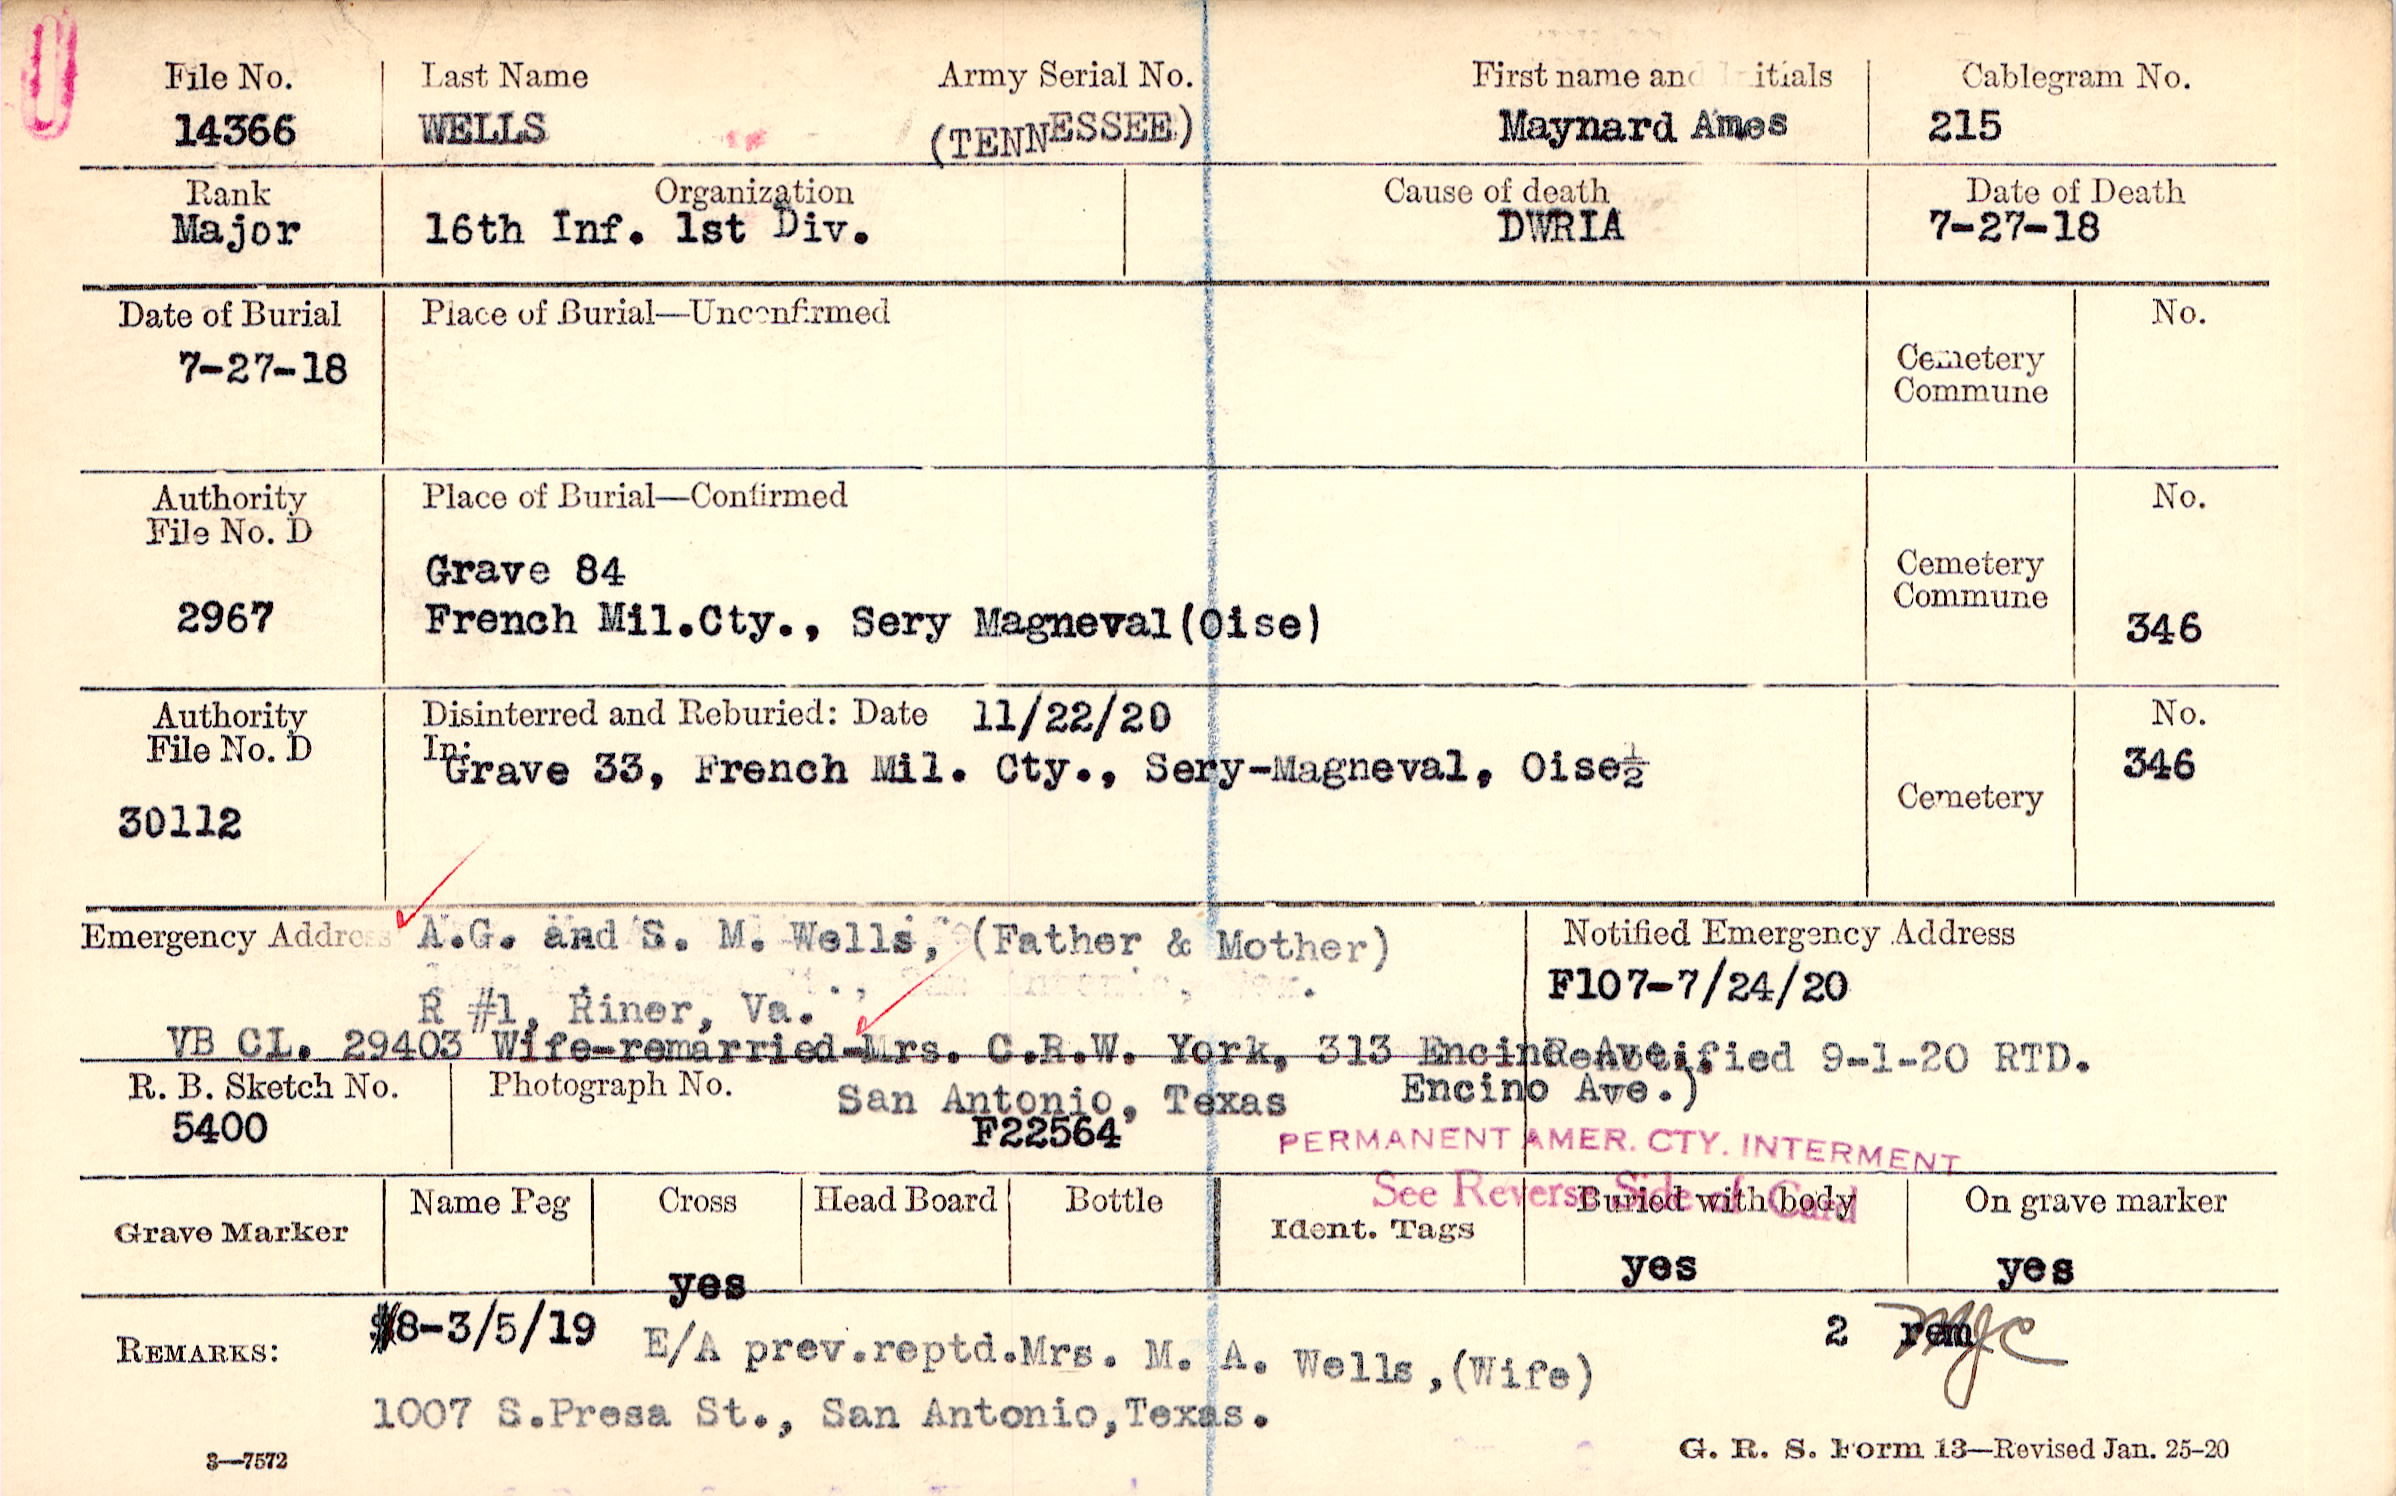 File No. Last Name Army Serial No. First name and Initials Cablegram No.
14366 WELLS (TENNESSEE) Maynard Ames 215
Rank Organization Cause of death Date of Death
Major 16th Inf. 1st Div. DWRIA 7-27-18
Date of Burial Place of Burial—Unconfirmed No.
7-27-18
Cemetery
Commune
Authority Place of Burial—Confirmed No.
File No. D
Grave 84
Cemetery
Commune
2967 French Mil.Cty., Sery Magneval(Oise) 346
Authority Disinterred and Reburied: Date 11/22/20 No.
File No. D In: Grave 33, French Mil. Cty., Sery-Magneval, Oise½ 346
Cemetery
30112
Emergency Address A.G. and S. M. Wells, (Father & Mother) Notified Emergency Address
F107-7/24/20
R #1, Riner, Va.
VB CL. 29403 Wife-remarried-Mrs. C.R.W. York, 313 Encino Ave., Renotified 9-1-20 RTD.
R. B. Sketch No. Photograph No. San Antonio, Texas Encino Ave.)
5400 F22564
PERMANENT AMER. CTY. INTERMENT
See Reverse Side of Card
Grave Marker Name Peg Cross Head Board Bottle Ident. Tags Buried with body On grave marker
yes yes yes
REMARKS: 8-3/5/19 E/A prev.reptd.Mrs. M. A. Wells,(Wife) 2 rem MJC
1007 S.Presa St., San Antonio,Texas.
3—7572 G. R. S. Form 13—Revised Jan. 25-20